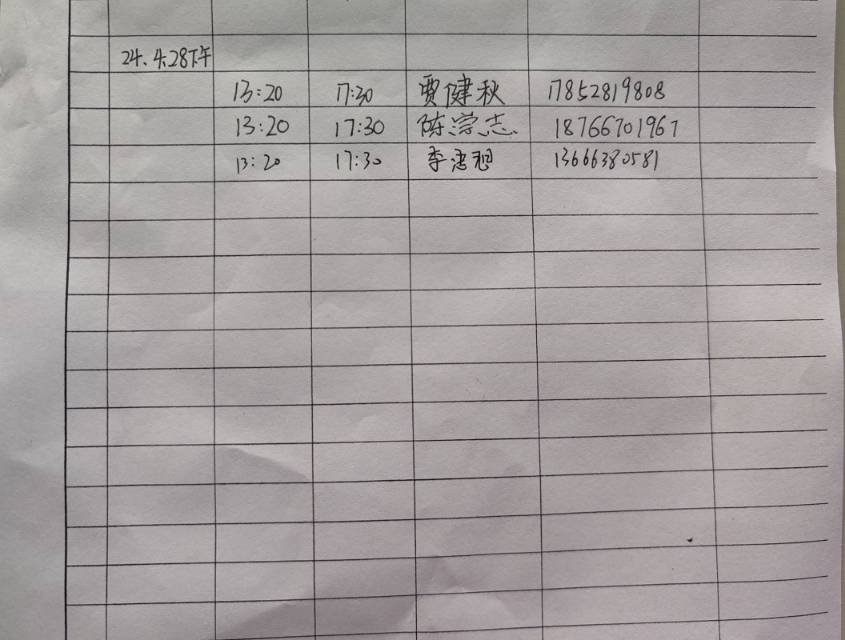 24.4.28下午
13:20 17:30 贾健秋 17852819808
13:20 17:30 陈崇志 18766701967
13:20 17:30 李 13666380581